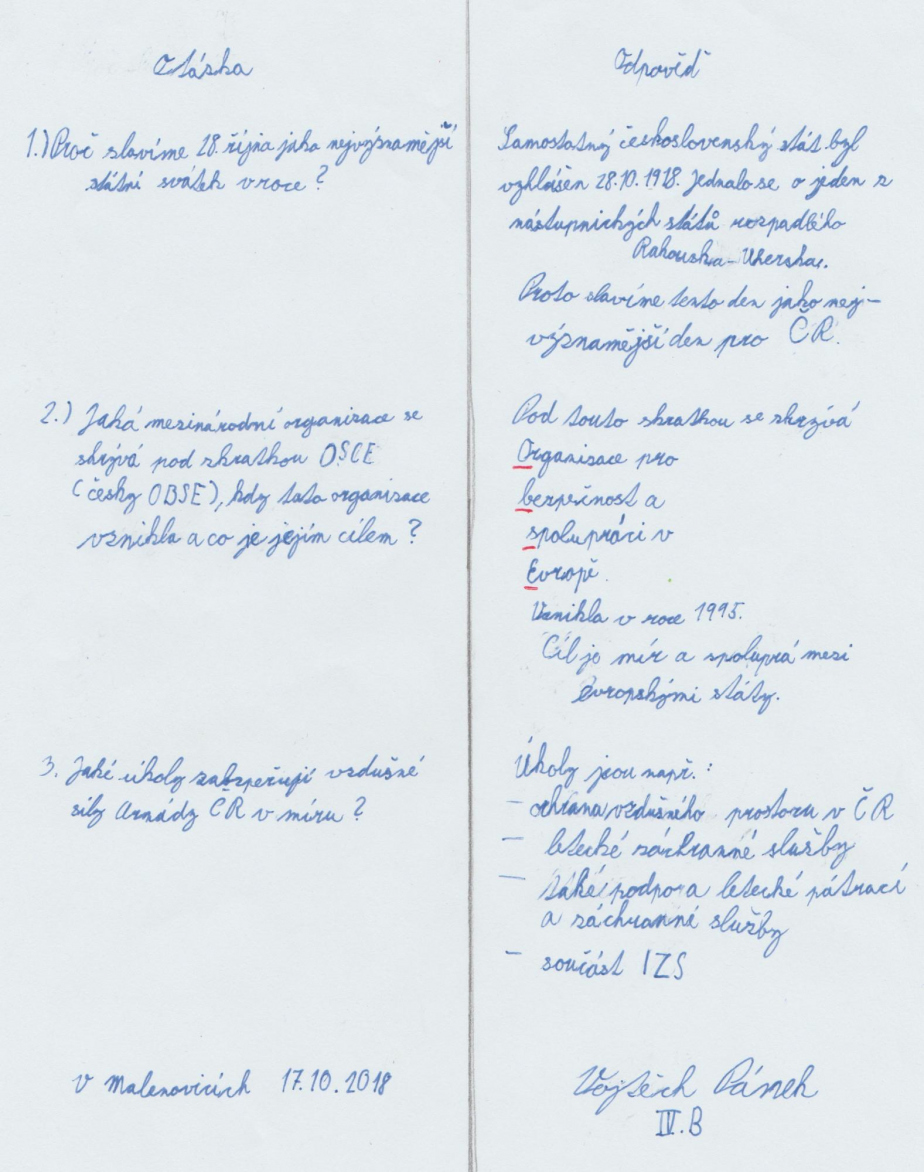 Otázka
1.) Proč slavíme 28. října jako nejvýznamější
státní svátek v roce?
2.) Jaká mezinárodní organizace se
skrývá pod zkratkou OSCE
(česky OBSE), kdy tato organizace
vznikla a co je jejím cílem?
3. Jaké úkoly zabezpečují vzdušné
síly Armády ČR v míru?
v Malenovicích 17.10.2018
Odpověď
Samostatný československý stát byl
vyhlášen 28.10.1918. Jednalo se o jeden z
nástupnických států rozpadlého
Rakouska-Uherska.
Proto slavíme tento den jako nej-
významější den pro ČR.
Pod touto zkratkou se zkrývá
Organizace pro
bezpečnost a
spolupráci v
Evropě.
Vznikla v roce 1995.
Cíl je mír a spoluprá mezi
evropskými státy.
Úkoly jsou např.:
- ochrana vzdušného prostoru v ČR
- letecké záchranné služby
- táké podpora letecké pátrací
a záchranné služby
- součást IZS
Vojtěch Pánek
IV.B